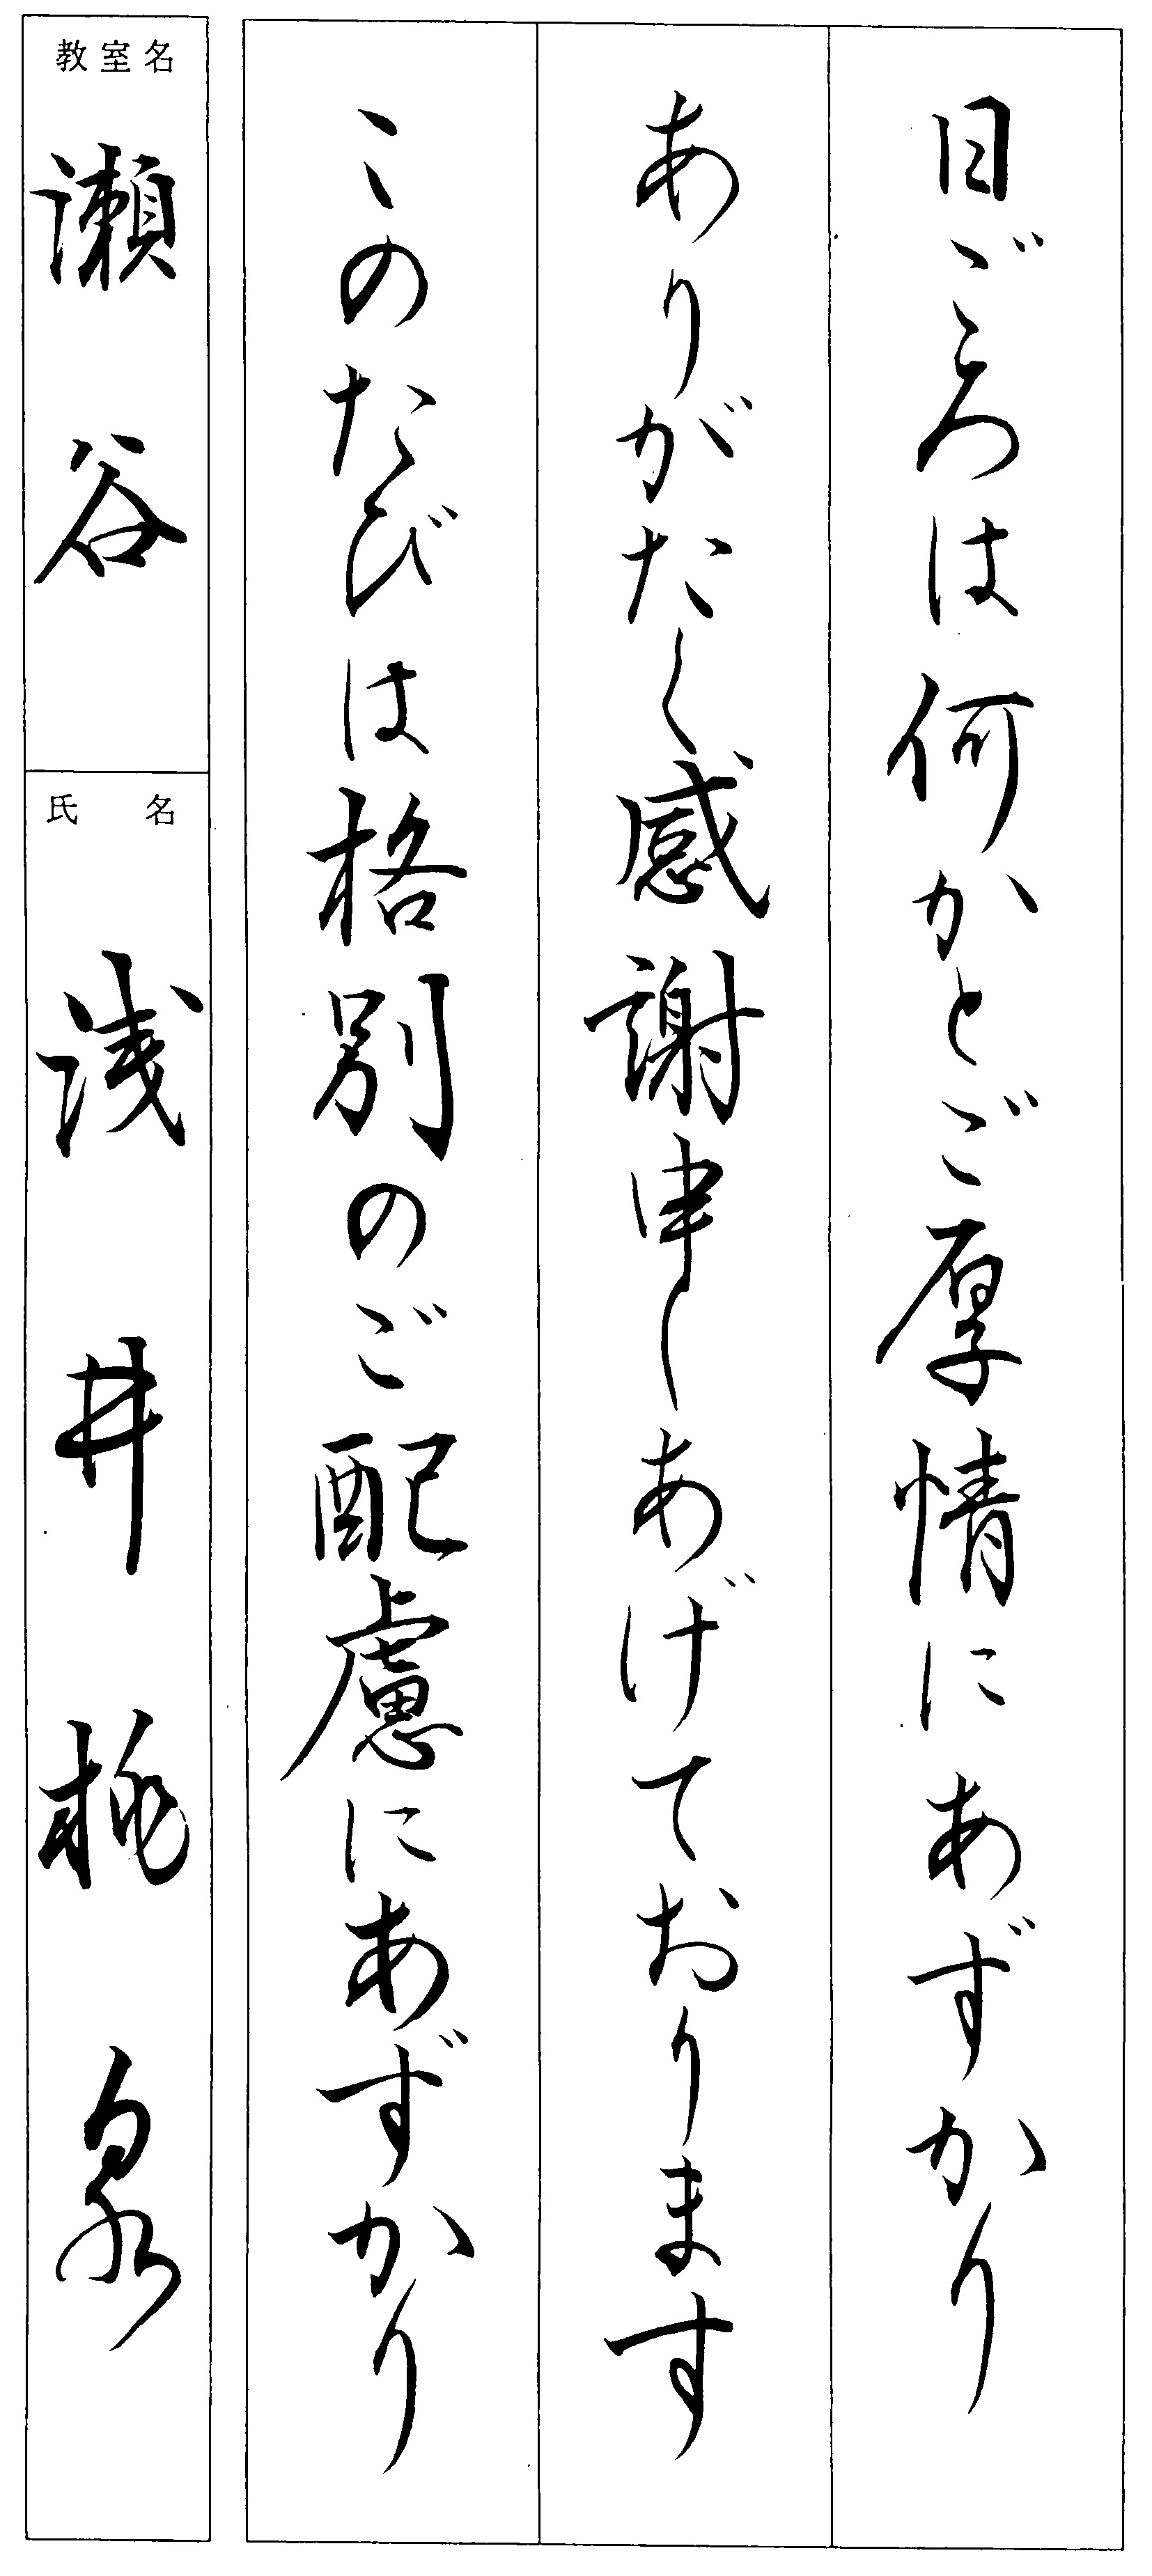 日ごろは何かとご厚情にあずかり
ありがたく感謝申しあげております
このたびは格別のご配慮にあずかり
教室名
瀬谷
氏名
浅井桃泉